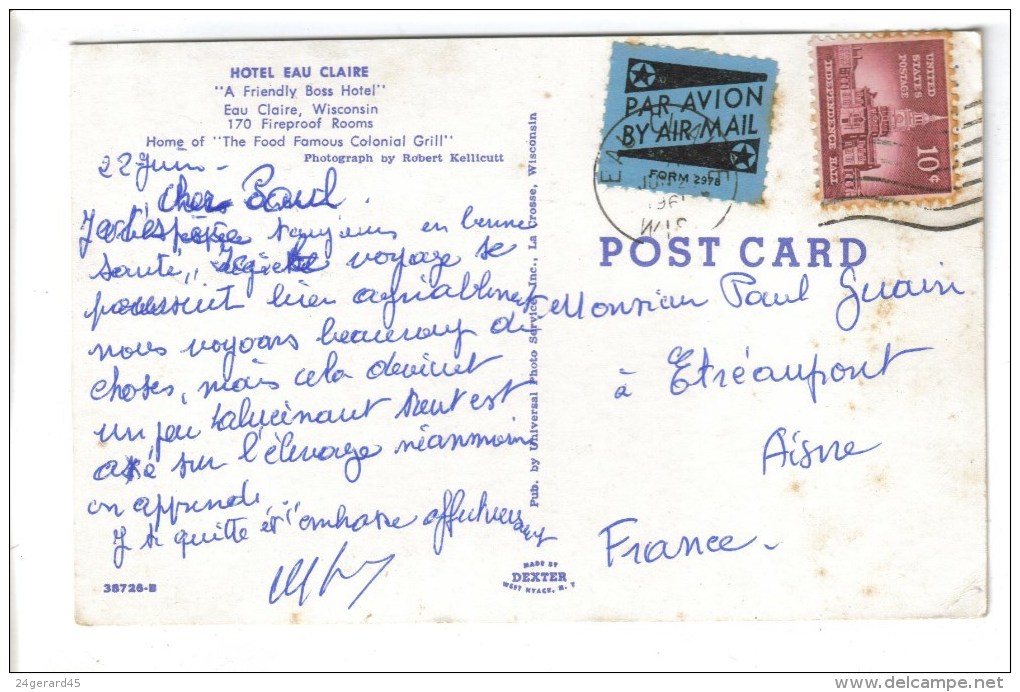 HOTEL EAU CLAIRE
"A Friendly Boss Hotel"
Eau Claire, Wisconsin
170 Fireproof Rooms
Home of "The Food Famous Colonial Grill"
Photograph by Robert Kellicutt
22 Juin -
Cher Paul.
J'espère toujours en bonne
santé, voyage se
poursuit bien agréablement
nous voyons beaucoup de
choses, mais cela devient
un peu halucinant tout est
axé sur l'élevage néanmoins
on apprend.
Je te quitte et t'embrasse affectueusement
38726-B
Pub. by Universal Photo Service, Inc., La Crosse, Wisconsin
MADE BY
DEXTER
WEST NYACK, N. Y.
PAR AVION
BY AIR MAIL
FORM 2978
UNITED
STATES
POSTAGE
INDEPENDENCE HALL
10¢
WIS
POST CARD
Monsieur Paul Guain
à Etréaupont
Aisne
France.
24gerard45
www.delcampe.net